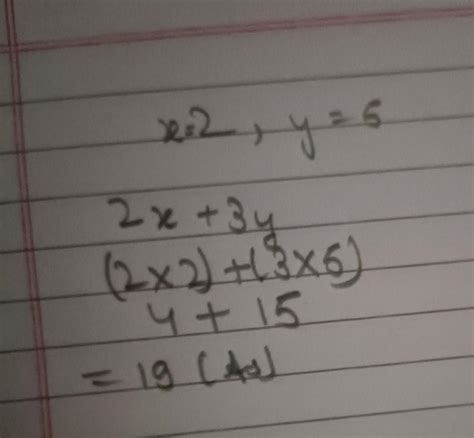 x=2, y=5
2x+3y
(2×2)+(3×5)
4+15
=19 (As)